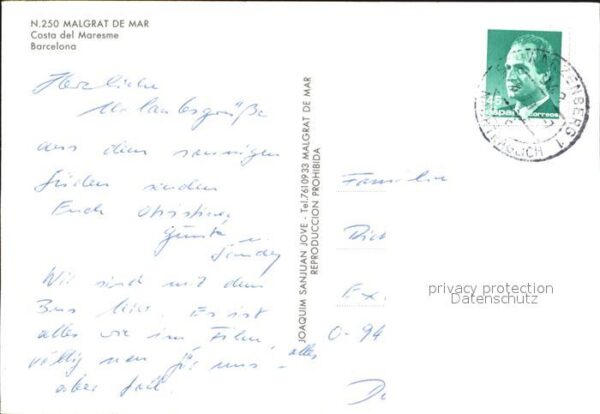 N.250 MALGRAT DE MAR
Costa del Maresme
Barcelona
Herzliche
Urlaubsgrüße
aus dem sonnigen
Süden senden
Euch Christine,
Gunter u.
Sandy
Wir sind mit dem
Bus hier. Es ist
alles wie im Film,
völlig neu für uns - alles
aber toll.
JOAQUIM SANJUAN JOVE - Tel.7610933 MALGRAT DE MAR
REPRODUCCION PROHIBIDA
45
España correos
Familie
0-94
privacy protection
Datenschutz